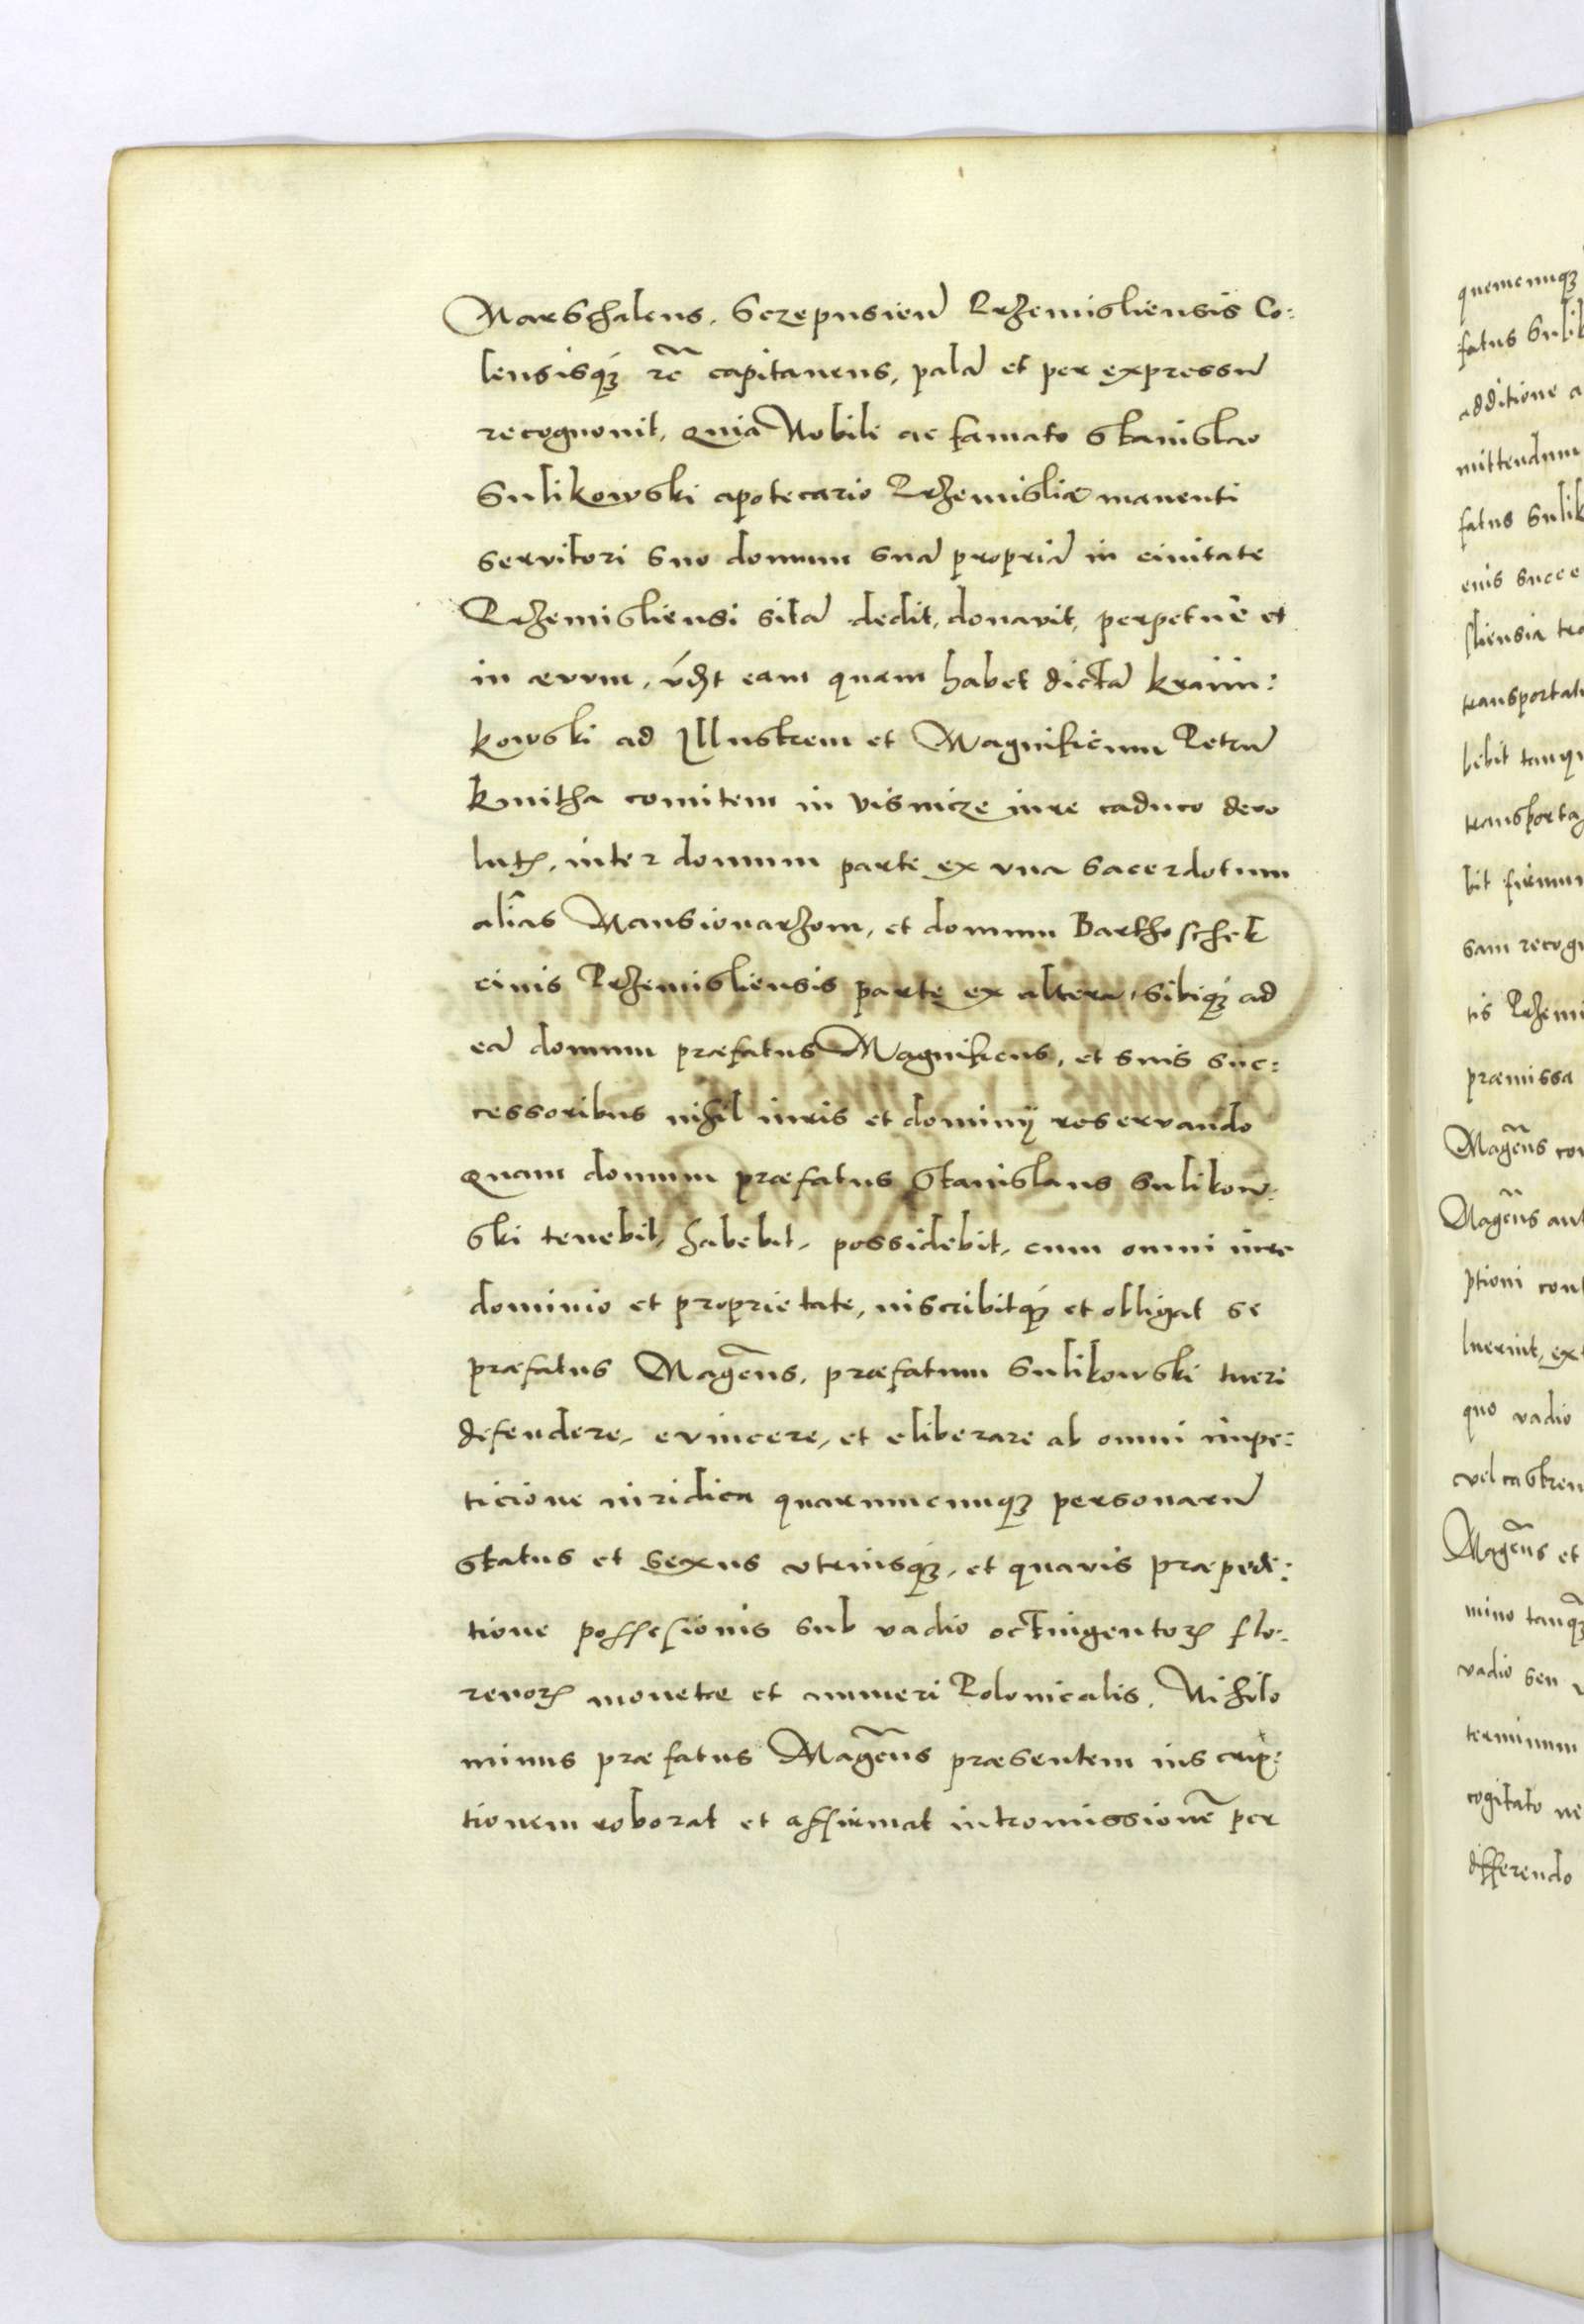 Marschalcus, Sczepusien̄ Przemisliensis Co:
lensisqꝫ etc̄ capitaneus, palā et per expressū
recognouit, quia Nobili ac famato Stanislao
Sulikowski apotecario Przemisliæ manenti
servitori suo domum suā propriā in ciuitate
Przemisliensi sitā dedit, donavit, perpetue et
in ævum, vdꝫt eam quam habet dictā Kraiin:
kowski ad Illustrem et Magnificum Petrū
Kmitha comitem in Visnicze iure caduco devo
lutꝫ, inter domum parte ex vna sacerdotum
alias Mansionarzom, et domum Barthoschek
ciuis Przemisliensis parte ex altera, sibiqꝫ ad
eā domum præfatus Magnificus, et suis suc:
cessoribus nihil iuris et dominij reservando
Quam domum præfatus Stanislaus Sulikow:
ski tenebit, habebit, possidebit, cum omni iure
dominio et proprietate, inscribitqꝫ et obligat se
præfatus Magcūs, præfatum Sulikowski tueri
defendere, evincere, et eliberare ab omni impe:
ticione iuridica quarumcunqꝫ personarū
status et sexus vtriusqꝫ, et quavis præpedi:
tione possesionis sub vadio octingentoꝝ flo:
renoꝝ monetæ et numeri Polonicalis, Nihilo
minus præfatus Magcūs præsentem inscrip:
tionem roborat et affirmat intromissionē per
quemcunqꝫ
fatus Sulik
additione a
mittendum
fatus Sulik
euis succe
sliensia tra
transportat
bebit tanqu
transporta
bit firmum
sam recog
tis Przemi
præmissa
Magcūs con
Magcūs aut
ptioni cont
luerint, ext
quo vadio
vel castren
Magcūs et
mino tanqꝫ
vadio seu
terminum
cogitato ne
differendo